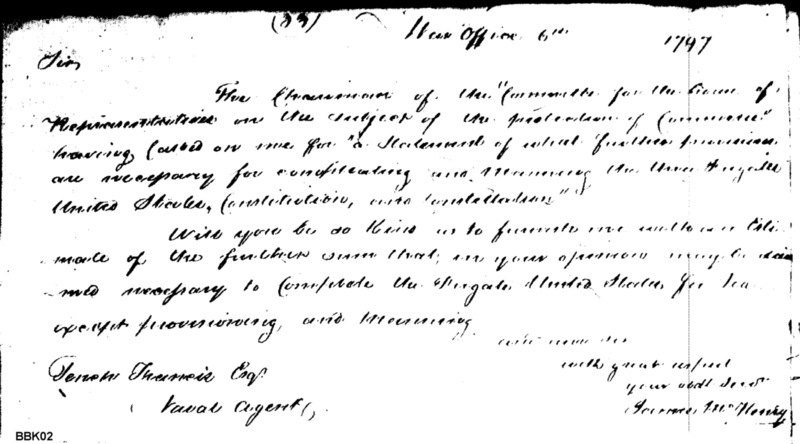 (33)
War Office 6th 1797
Sir,
The Chairman of the "Committee for the House of
Representatives on the subject of the protection of Commerce"
having, Called on me for "a Statement of what further provisions
are necessary for completing and Manning the three Frigates
United States, Constitution, and Constellation"
Will you be so Kind as to furnish me with an Esti-
mate of the further sum that, in your opinion may be
necessary to Complete the Frigate United States for Sea
except provisioning, and Manning
with great respect
your obdt Servt
James McHenry
Tench Francis Esqr
Naval Agent,
BBK02